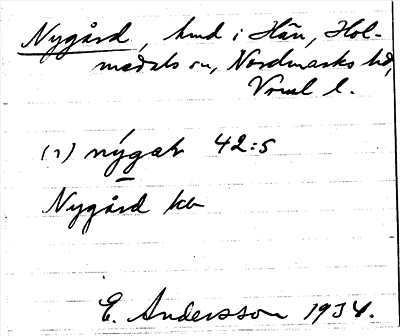 Nygård, hmd i Hån, Hol-
medals sn, Nordmarks hd,
Vrml l.
(1) nýgaṭ 42:5
Nygård ka
E. Andersson 1934.